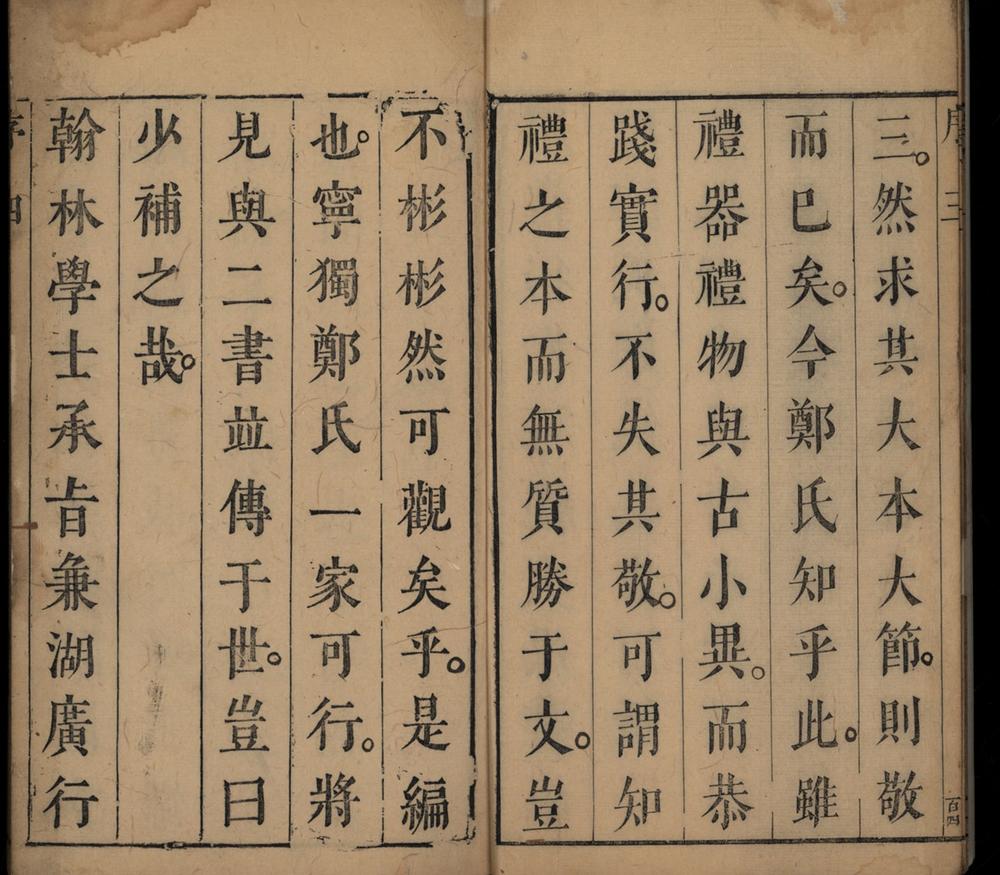 序 三
百四
三。然求其大本大節。則敬
而巳矣。今鄭氏知乎此。雖
禮器禮物與古小異。而恭
踐實行。不失其敬。可謂知
禮之本而無質勝于文。豈
不彬彬然可觀矣乎。是編
也。寧獨鄭氏一家可行。將
見與二書並傳于世。豈曰
少補之哉。
翰林學士承㫖兼湖廣行
序 四